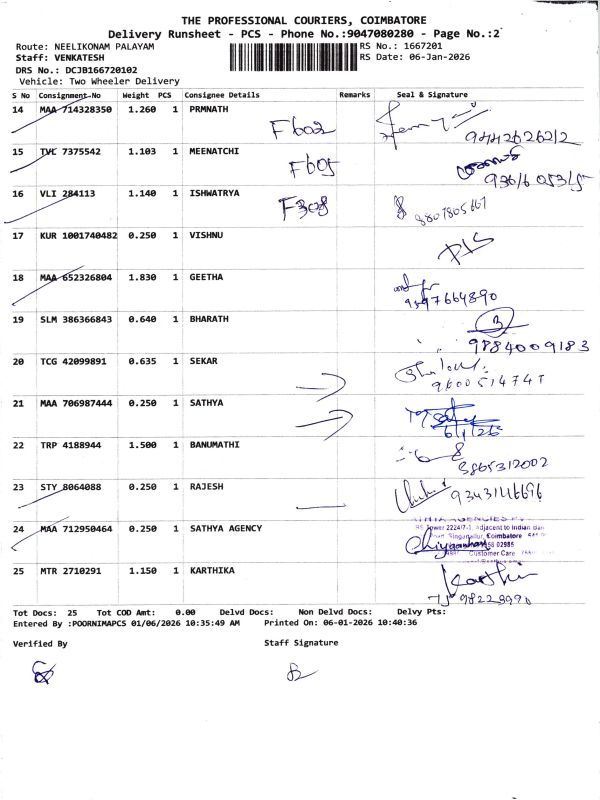 THE PROFESSIONAL COURIERS, COIMBATORE
Delivery Runsheet - PCS - Phone No.:9047080280 - Page No.:2
Route: NEELIKONAM PALAYAM
RS No.: 1667201
Staff: VENKATESH
RS Date: 06-Jan-2026
DRS No.: DCJB166720102
Vehicle: Two Wheeler Delivery
S No Consignment-No Weight PCS Consignee Details Remarks Seal & Signature
14 MAA 714328350 1.260 1 PRMNATH
F602
9442626212
15 TVL 7375542 1.103 1 MEENATCHI
F605
16 VLI 284113 1.140 1 ISHWATRYA
F308
8807805667
17 KUR 1001740482 0.250 1 VISHNU
18 MAA 652326804 1.830 1 GEETHA
9597664890
19 SLM 386366843 0.640 1 BHARATH
9884009183
20 TCG 42099891 0.635 1 SEKAR
9600514747
21 MAA 706987444 0.250 1 SATHYA
6/1/26
22 TRP 4188944 1.500 1 BANUMATHI
23 STY 8064088 0.250 1 RAJESH
24 MAA 712950464 0.250 1 SATHYA AGENCY
Adjacent to Indian
Singanallur, Coimbatore
Customer Care
25 MTR 2710291 1.150 1 KARTHIKA
Tot Docs: 25 Tot COD Amt: 0.00 Delvd Docs: Non Delvd Docs: Delvy Pts:
Entered By :POORNIMAPCS 01/06/2026 10:35:49 AM Printed On: 06-01-2026 10:40:36
Verified By Staff Signature